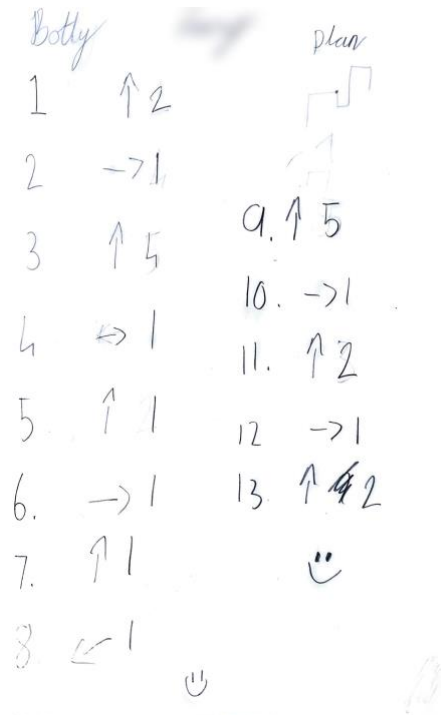 Botly
plan
1 ↑ 2
2 → 1
3 ↑ 5
4 ↔ 1
5 ↑ 1
6. → 1
7. ↑ 1
8 ← 1
9. ↑ 5
10. → 1
11. ↑ 2
12 → 1
13. ↑ 2